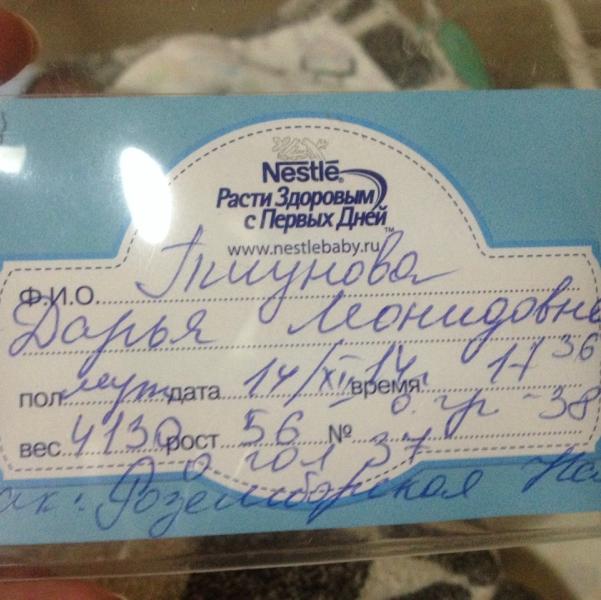 Nestlē®
Расти Здоровым
с Первых Дней™
www.nestlebaby.ru
Ф.И.О. Тиунова
Дарья Леонидовна
пол муж дата 14/XII 14г. время 17 36
вес 4130 рост 56 № о. гр - 38
о гол 37